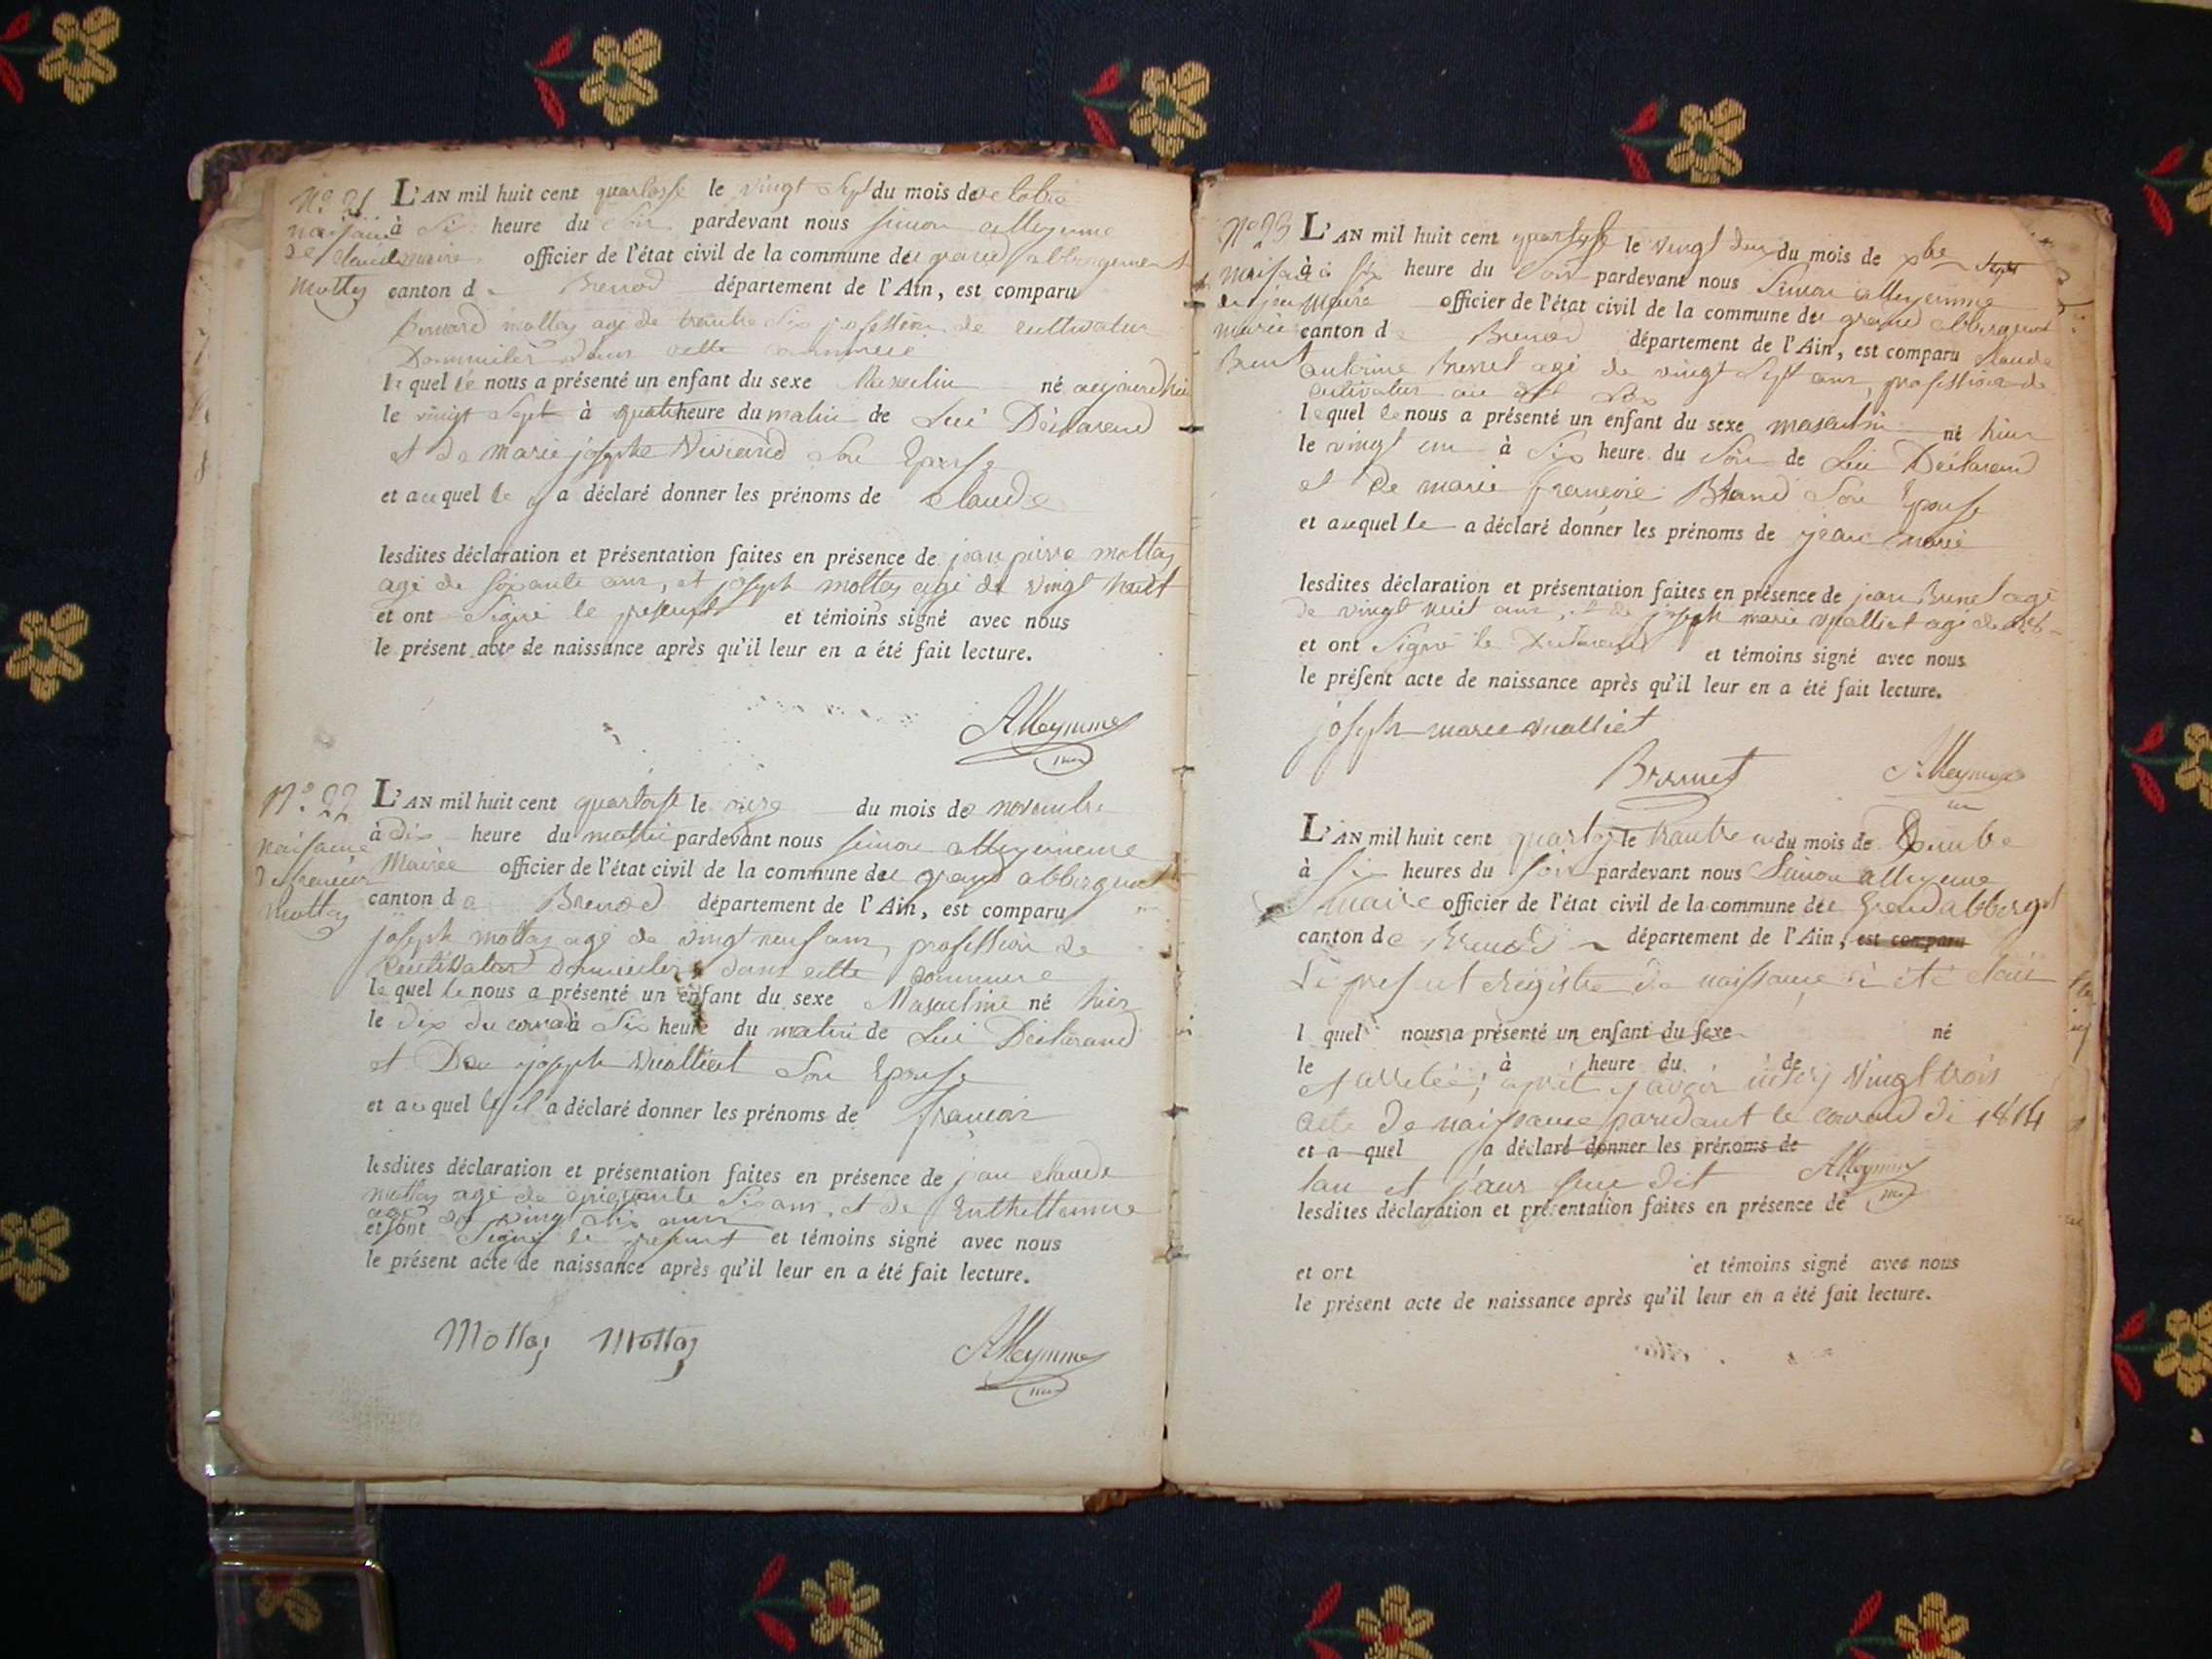 N° 21
naissance
de Claude
Mottay
L'AN mil huit cent quartorse le vingt Sept du mois de octobre
à Six heure du Soir pardevant nous Simon alleymme
maire officier de l'état civil de la commune du grand abbergement
canton de Brenod département de l'Ain, est comparu
Bernard mottay agé de trantre Six profession de cultivateur
Domicilié dans cette commune
lequel le nous a présenté un enfant du sexe Masculin né aujourdhui
le vingt Sept à quatre heure du matin de Lui Déclarand
et de marie josephe Viviand Son Epouse
et auquel le a déclaré donner les prénoms de Claude
lesdites déclaration et présentation faites en présence de jean pierre mottay
agé de Soixante ans, et joseph mottay agé de vingt huit
et ont Signé le présent et témoins signé avec nous
le présent acte de naissance après qu'il leur en a été fait lecture.
Alleymme
N° 22
naissance
de francois
Mottay
L'AN mil huit cent quartorse le onze du mois de novembre
à dix heure du matin pardevant nous Simon alleymme
Maire officier de l'état civil de la commune du grand abbergement
canton de Brenod département de l'Ain, est comparu
joseph mottay agé de vingt neuf ans, profession de
Cultivateur Domicilié dans cette commune
lequel le nous a présenté un enfant du sexe Masculine né hier
le dix du courand à Six heure du matin de Lui Déclarand
et De joseph Vualliet Son Epouse
et auquel il a déclaré donner les prénoms de francois
lesdites déclaration et présentation faites en présence de jean claude
mottay agé de cinquante Six ans, et de
agé de vingt Six ans
et sont Signé le présent et témoins signé avec nous
le présent acte de naissance après qu'il leur en a été fait lecture.
Mottay Mottay
Alleymme
N° 23
naissance
de jean
marie
Brunet
L'AN mil huit cent quartorse le vingt deux du mois de xbre
à Six heure du Soir pardevant nous Simon alleymme
Maire officier de l'état civil de la commune du grand abbergement
canton de Brenod département de l'Ain, est comparu Claude
antoine Brunet agé de vingt Sept ans, profession de
cultivateur au dit
lequel le nous a présenté un enfant du sexe masculin né hier
le vingt un à Six heure du Soir de Lui Déclarand
et De marie francoise Son Epouse
et auquel le a déclaré donner les prénoms de jean marie
lesdites déclaration et présentation faites en présence de jean Brunet agé
de vingt huit ans, et de joseph marie Vualliet agé de
et ont Signé le Déclarand et témoins signé avec nous
le présent acte de naissance après qu'il leur en a été fait lecture.
joseph marie Vualliet
Brunet Alleymme
L'AN mil huit cent quartorse le trantre un du mois de Décembre
à Six heures du Soir pardevant nous Simon alleymme
maire officier de l'état civil de la commune de Grand abbergt
canton de Brenod département de l'Ain, est comparu
Le present Régistre de naissance à été clair
l quel nous a présenté un enfant du sexe né
le à heure du de
et arretée, après y avoir vingt trois
acte De naissance pendant le courand de 1814
et a quel a déclaré donner les prénoms de
lan et jour que dit Alleymme
lesdites déclaration et présentation faites en présence de
et ont et témoins signé avec nous
le présent acte de naissance après qu'il leur en a été fait lecture.